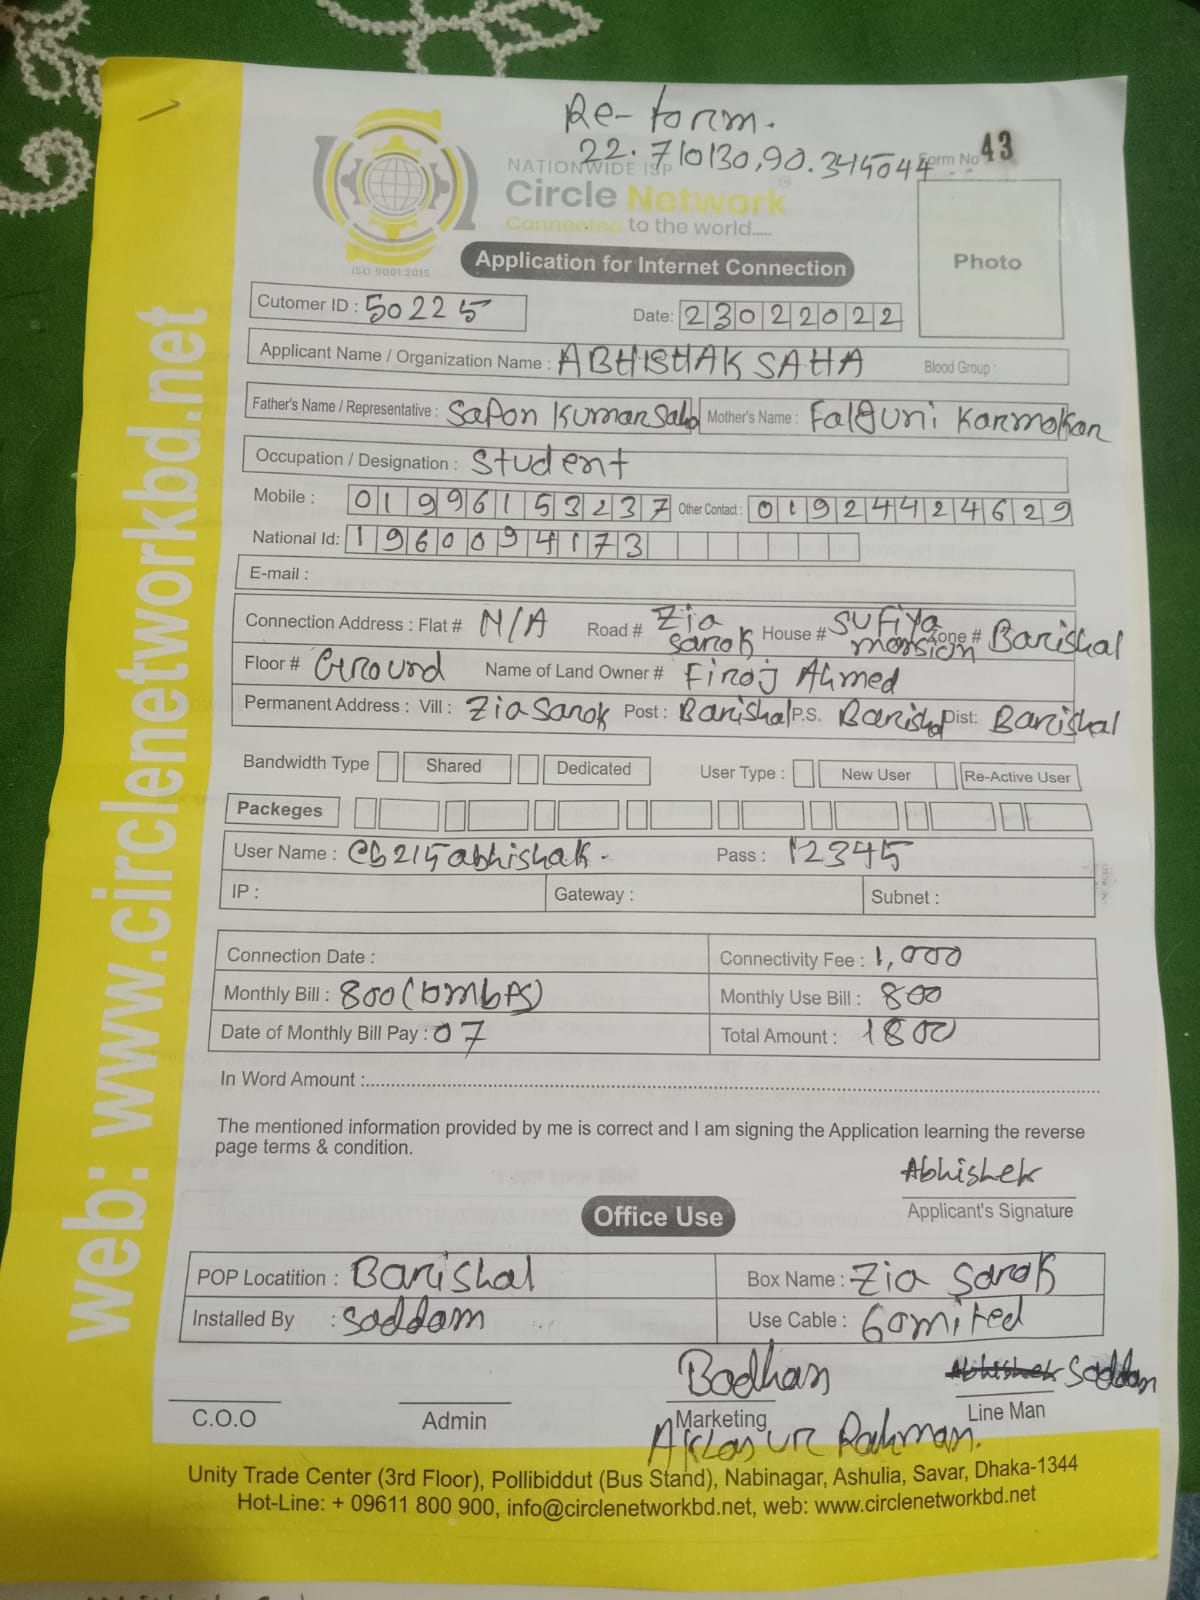 Re-form.
22.710130,90.345044
Form No 43
NATIONWIDE ISP
Circle Network
Connected to the world.....
ISO 9001:2015
Photo
Application for Internet Connection
Cutomer ID : 50225
Date: 23022022
Applicant Name / Organization Name : ABHISHAK SAHA Blood Group :
Father's Name / Representative : Sapon Kumar Saha Mother's Name : Falguni Karmokar
Occupation / Designation : Student
Mobile : 01996153237 Other Contact : 01924424629
National Id: 1960094173
E-mail :
Connection Address : Flat # N/A Road # Zia sarok House # Sufiya mansion Zone # Barishal
Floor # Ground Name of Land Owner # Firoj Ahmed
Permanent Address : Vill : Zia Sarok Post : Barishal P.S. Barishal Dist: Barishal
Bandwidth Type Shared Dedicated User Type : New User Re-Active User
Packeges
User Name : cb215abhishak. Pass : 12345
IP : Gateway : Subnet :
Connection Date : Connectivity Fee : 1,000
Monthly Bill : 800 Monthly Use Bill : 800
Date of Monthly Bill Pay : 07 Total Amount : 1800
In Word Amount :
The mentioned information provided by me is correct and I am signing the Application learning the reverse
page terms & condition.
Abhishek
Applicant's Signature
Office Use
POP Locatition : Barishal Box Name : Zia Sarok
Installed By : Saddam Use Cable :
Badhan Abhishek Saddam
C.O.O Admin Marketing Line Man
Rahman.
Unity Trade Center (3rd Floor), Pollibiddut (Bus Stand), Nabinagar, Ashulia, Savar, Dhaka-1344
Hot-Line: + 09611 800 900, info@circlenetworkbd.net, web: www.circlenetworkbd.net
web: www.circlenetworkbd.net